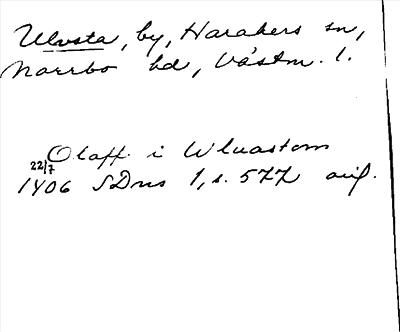 Ulvsta, by, Harakers sn,
Norrbo hd, Västm. l.
Olaff i Wluastom
22/7
1406 SDns 1, s. 577 avs.